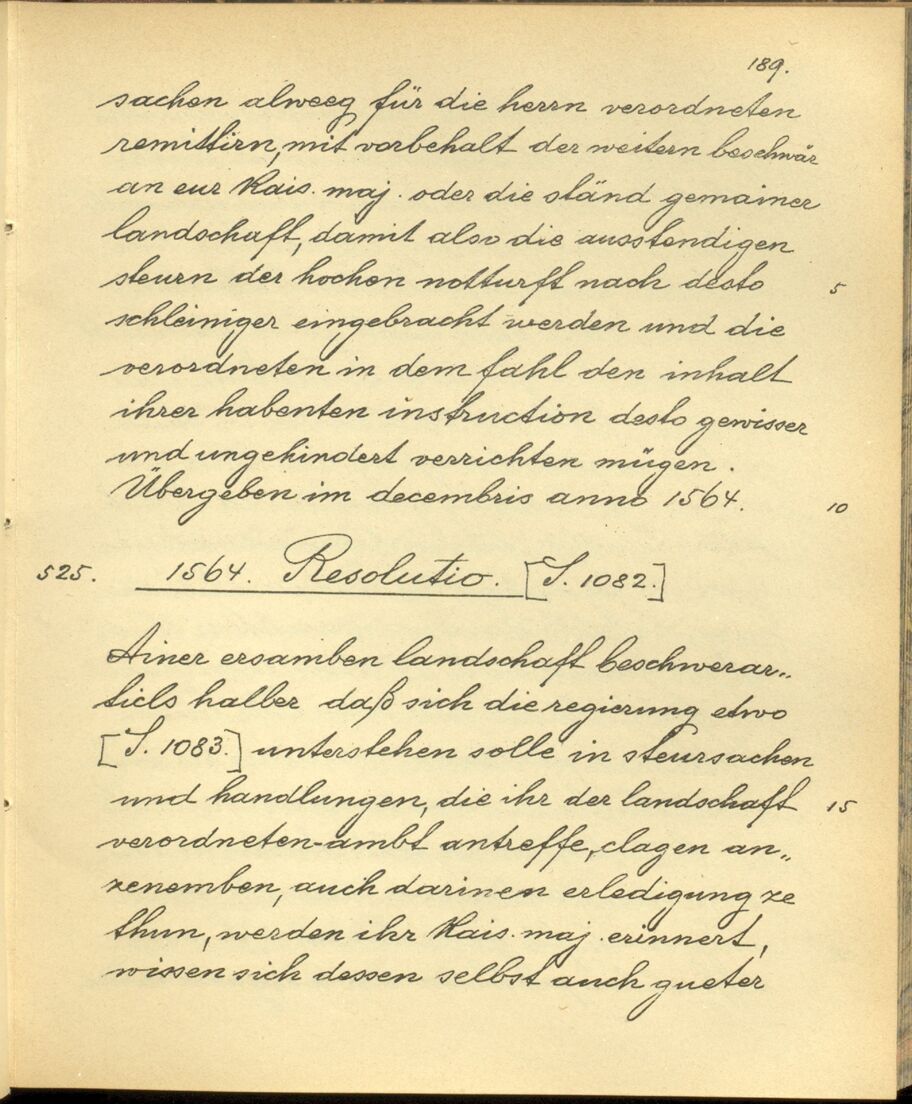 189.
sachen alweeg für die herrn verordneten
remittirn, mit vorbehalt der weitern beschwär
an eur Kais. maj. oder die ständ gemainer
landschaft, damit also die ausstendigen
steurn der hochen notturft nach desto
5
schleiniger eingebracht werden und die
verordneten in dem fahl den inhalt
ihrer habenten instruction desto gewisser
und ungehindert verrichten mügen.
Übergeben im decembris anno 1564.
10
525. 1564. Resolutio. [S. 1082.]
Ainer ersamben landschaft beschwerar„
ticls halber daß sich die regierung etwo
[S. 1083.] unterstehen solle in steursachen
und handlungen, die ihr der landschaft
15
verordneten-ambt antreffe, clagen an„
zenemben, auch darinen erledigung ze
thun, werden ihr Kais. maj. erinnert,
wissen sich dessen selbst auch gueter